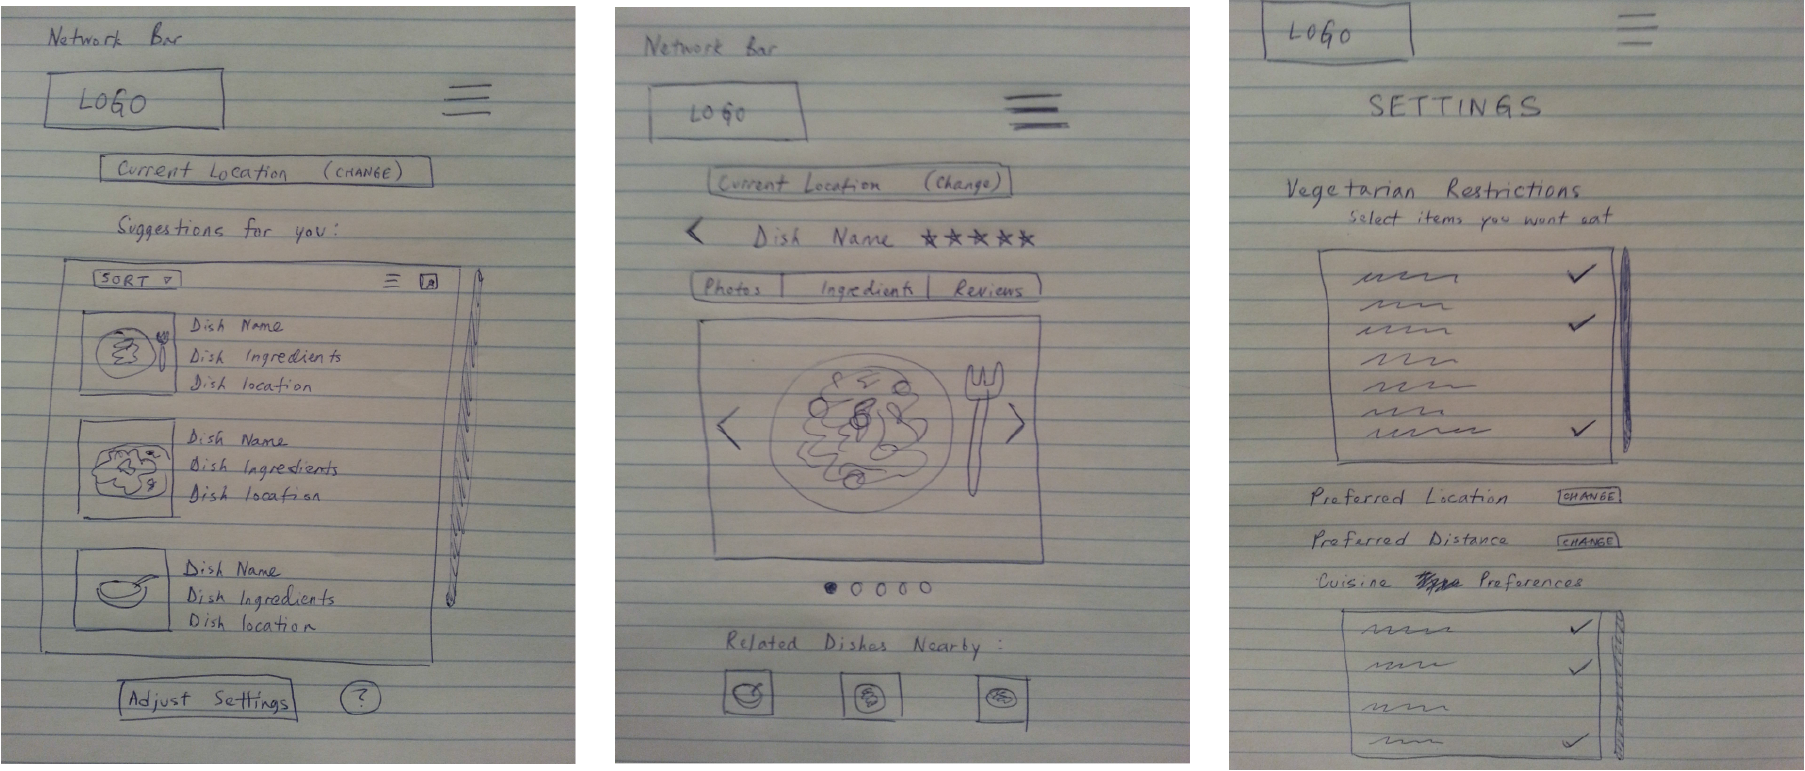 Network Bar
LOGO
Current Location (CHANGE)
Suggestions for you:
SORT
Dish Name
Dish Ingredients
Dish location
Dish Name
Dish Ingredients
Dish location
Dish Name
Dish Ingredients
Dish location
Adjust Settings ?
Network Bar
LOGO
Current Location (Change)
< Dish Name ★★★★★
Photos Ingredients Reviews
Related Dishes Nearby:
LOGO
SETTINGS
Vegetarian Restrictions
Select items you wont eat
Preferred Location CHANGE
Preferred Distance CHANGE
Cuisine Preferences